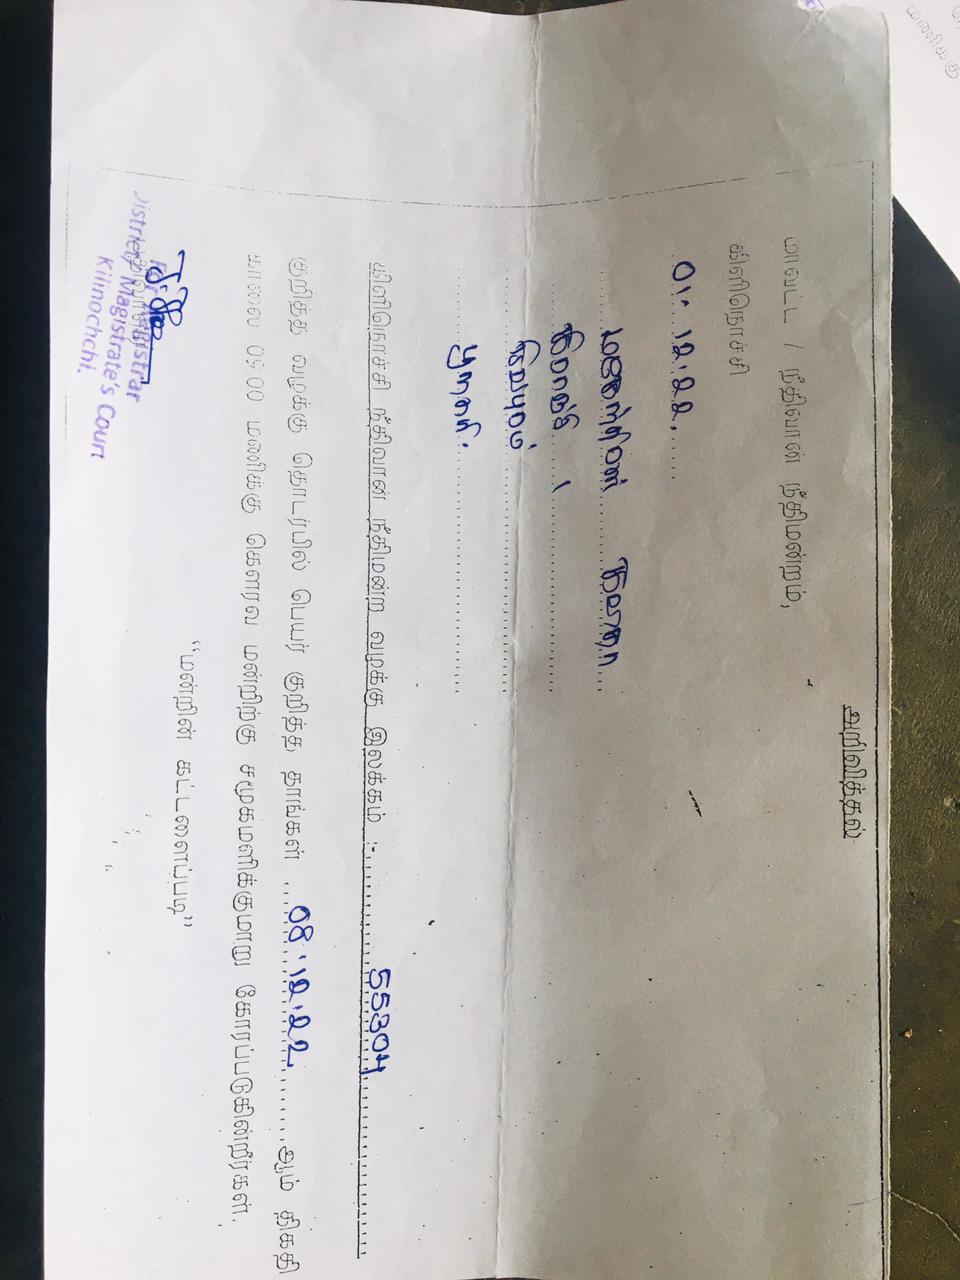 அறிவித்தல்
மாவட்ட / நீதிவான் நீதிமன்றம்,
கிளிநொச்சி
01.12.22.
கிளிநொச்சி நீதிவான் நீதிமன்ற வழக்கு இலக்கம் :- 55304
குறித்த வழக்கு தொடர்பில் பெயர் குறித்த தாங்கள் 08.12.22 ஆம் திகதி
காலை 09.00 மணிக்கு கௌரவ மன்றிற்கு சமுகமளிக்குமாறு கோரப்படுகின்றீர்கள்.
“மன்றின் கட்டளைப்படி”
Registrar
District/ Magistrate's Court
Kilinochchi.
மணிக்கு